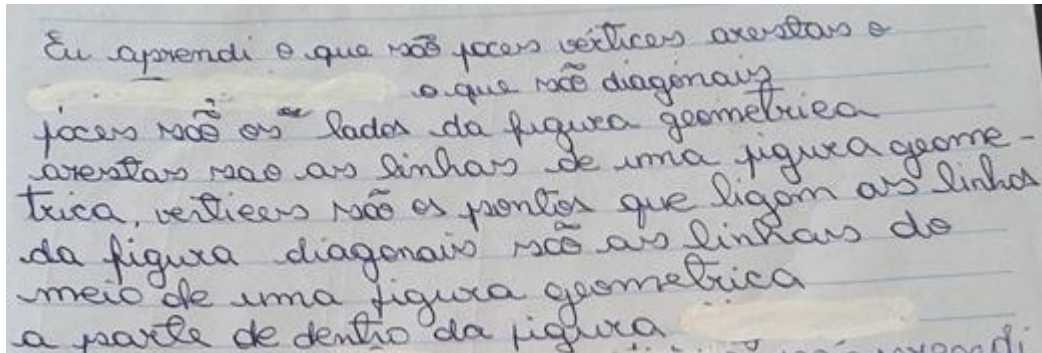 Eu aprendi o que são faces vertices arestas e
o que são diagonais
faces são os lados da figura geometrica
arestas sao as linhas de uma figura geome-
trica, vertices são os pontos que ligam as linhas
da figura diagonais são as linhas do
meio de uma figura geometrica
a parte de dentro da figura